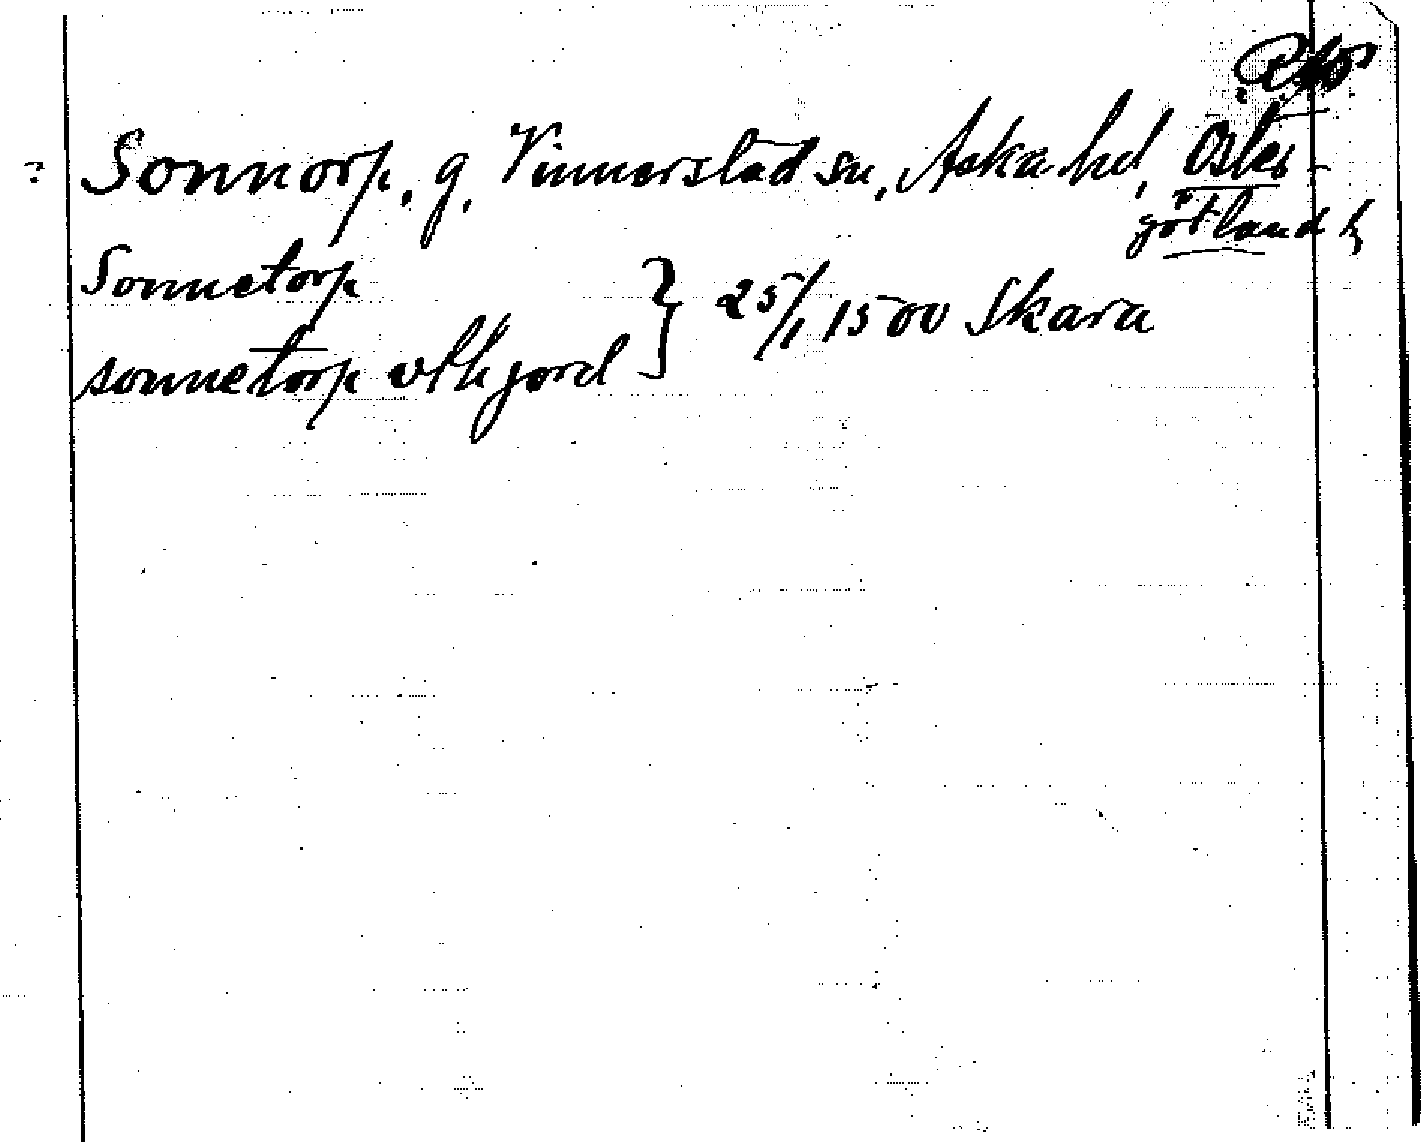 ? Sonnorp, g, Vinnerstad sn, Aska hd, Öster-
götland
Sonnetorp
sonnetorp vthjord } 25/1 1500 Skara